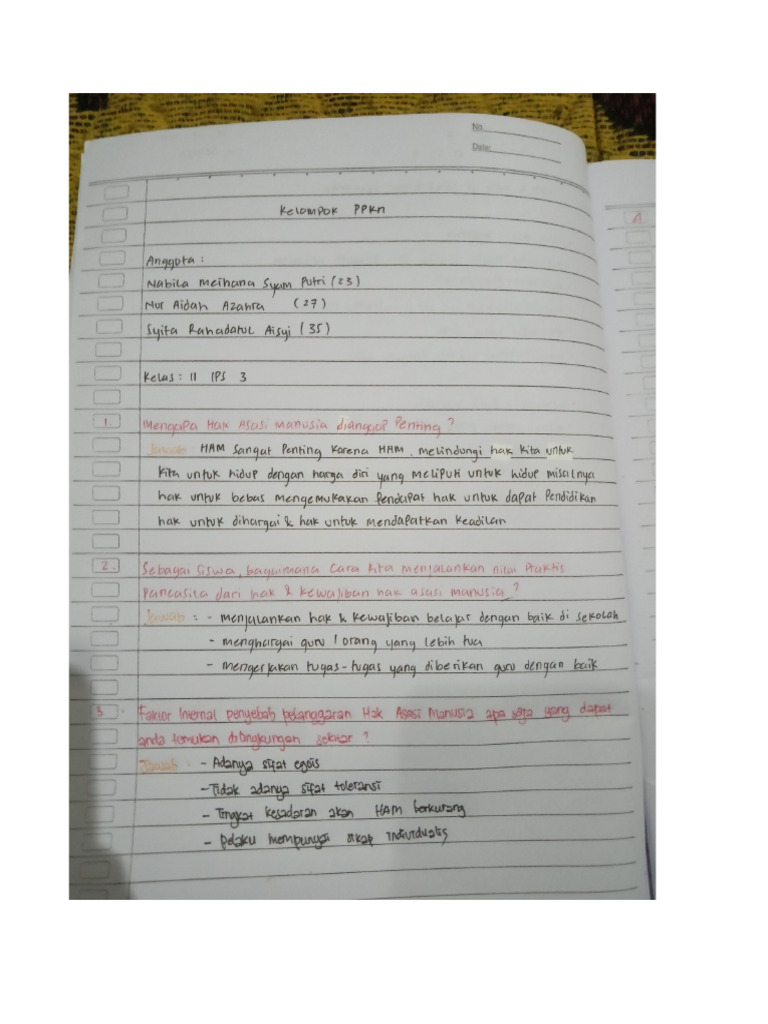 No.
Date:
Kelompok PPKn
Anggota :
Nabila Meihana Syam Putri (23)
Nur Aidah Azahra (27)
Syita Rahadatul Aisyi (35)
Kelas : 11 IPS 3
1. Mengapa Hak Asasi Manusia dianggap Penting ?
Jawab : HAM Sangat Penting Karena HAM, melindungi hak kita untuk
kita untuk hidup dengan harga diri yang meliputi untuk hidup misalnya
hak untuk bebas mengemukakan pendapat hak untuk dapat Pendidikan
hak untuk dihargai & hak untuk mendapatkan keadilan
2. Sebagai Siswa, bagaimana cara kita menjalankan nilai Praktis
Pancasila dari hak & kewajiban hak asasi manusia ?
Jawab : - menjalankan hak & kewajiban belajar dengan baik di sekolah
- menghargai guru / orang yang lebih tua
- mengerjakan tugas-tugas yang diberikan guru dengan baik
3. Faktor Internal penyebab pelanggaran Hak Asasi Manusia apa saja yang dapat
anda temukan dilingkungan sekitar ?
Jawab : - Adanya sifat egois
- Tidak adanya sifat toleransi
- Tingkat kesadaran akan HAM berkurang
- Pelaku mempunyai sikap individualis